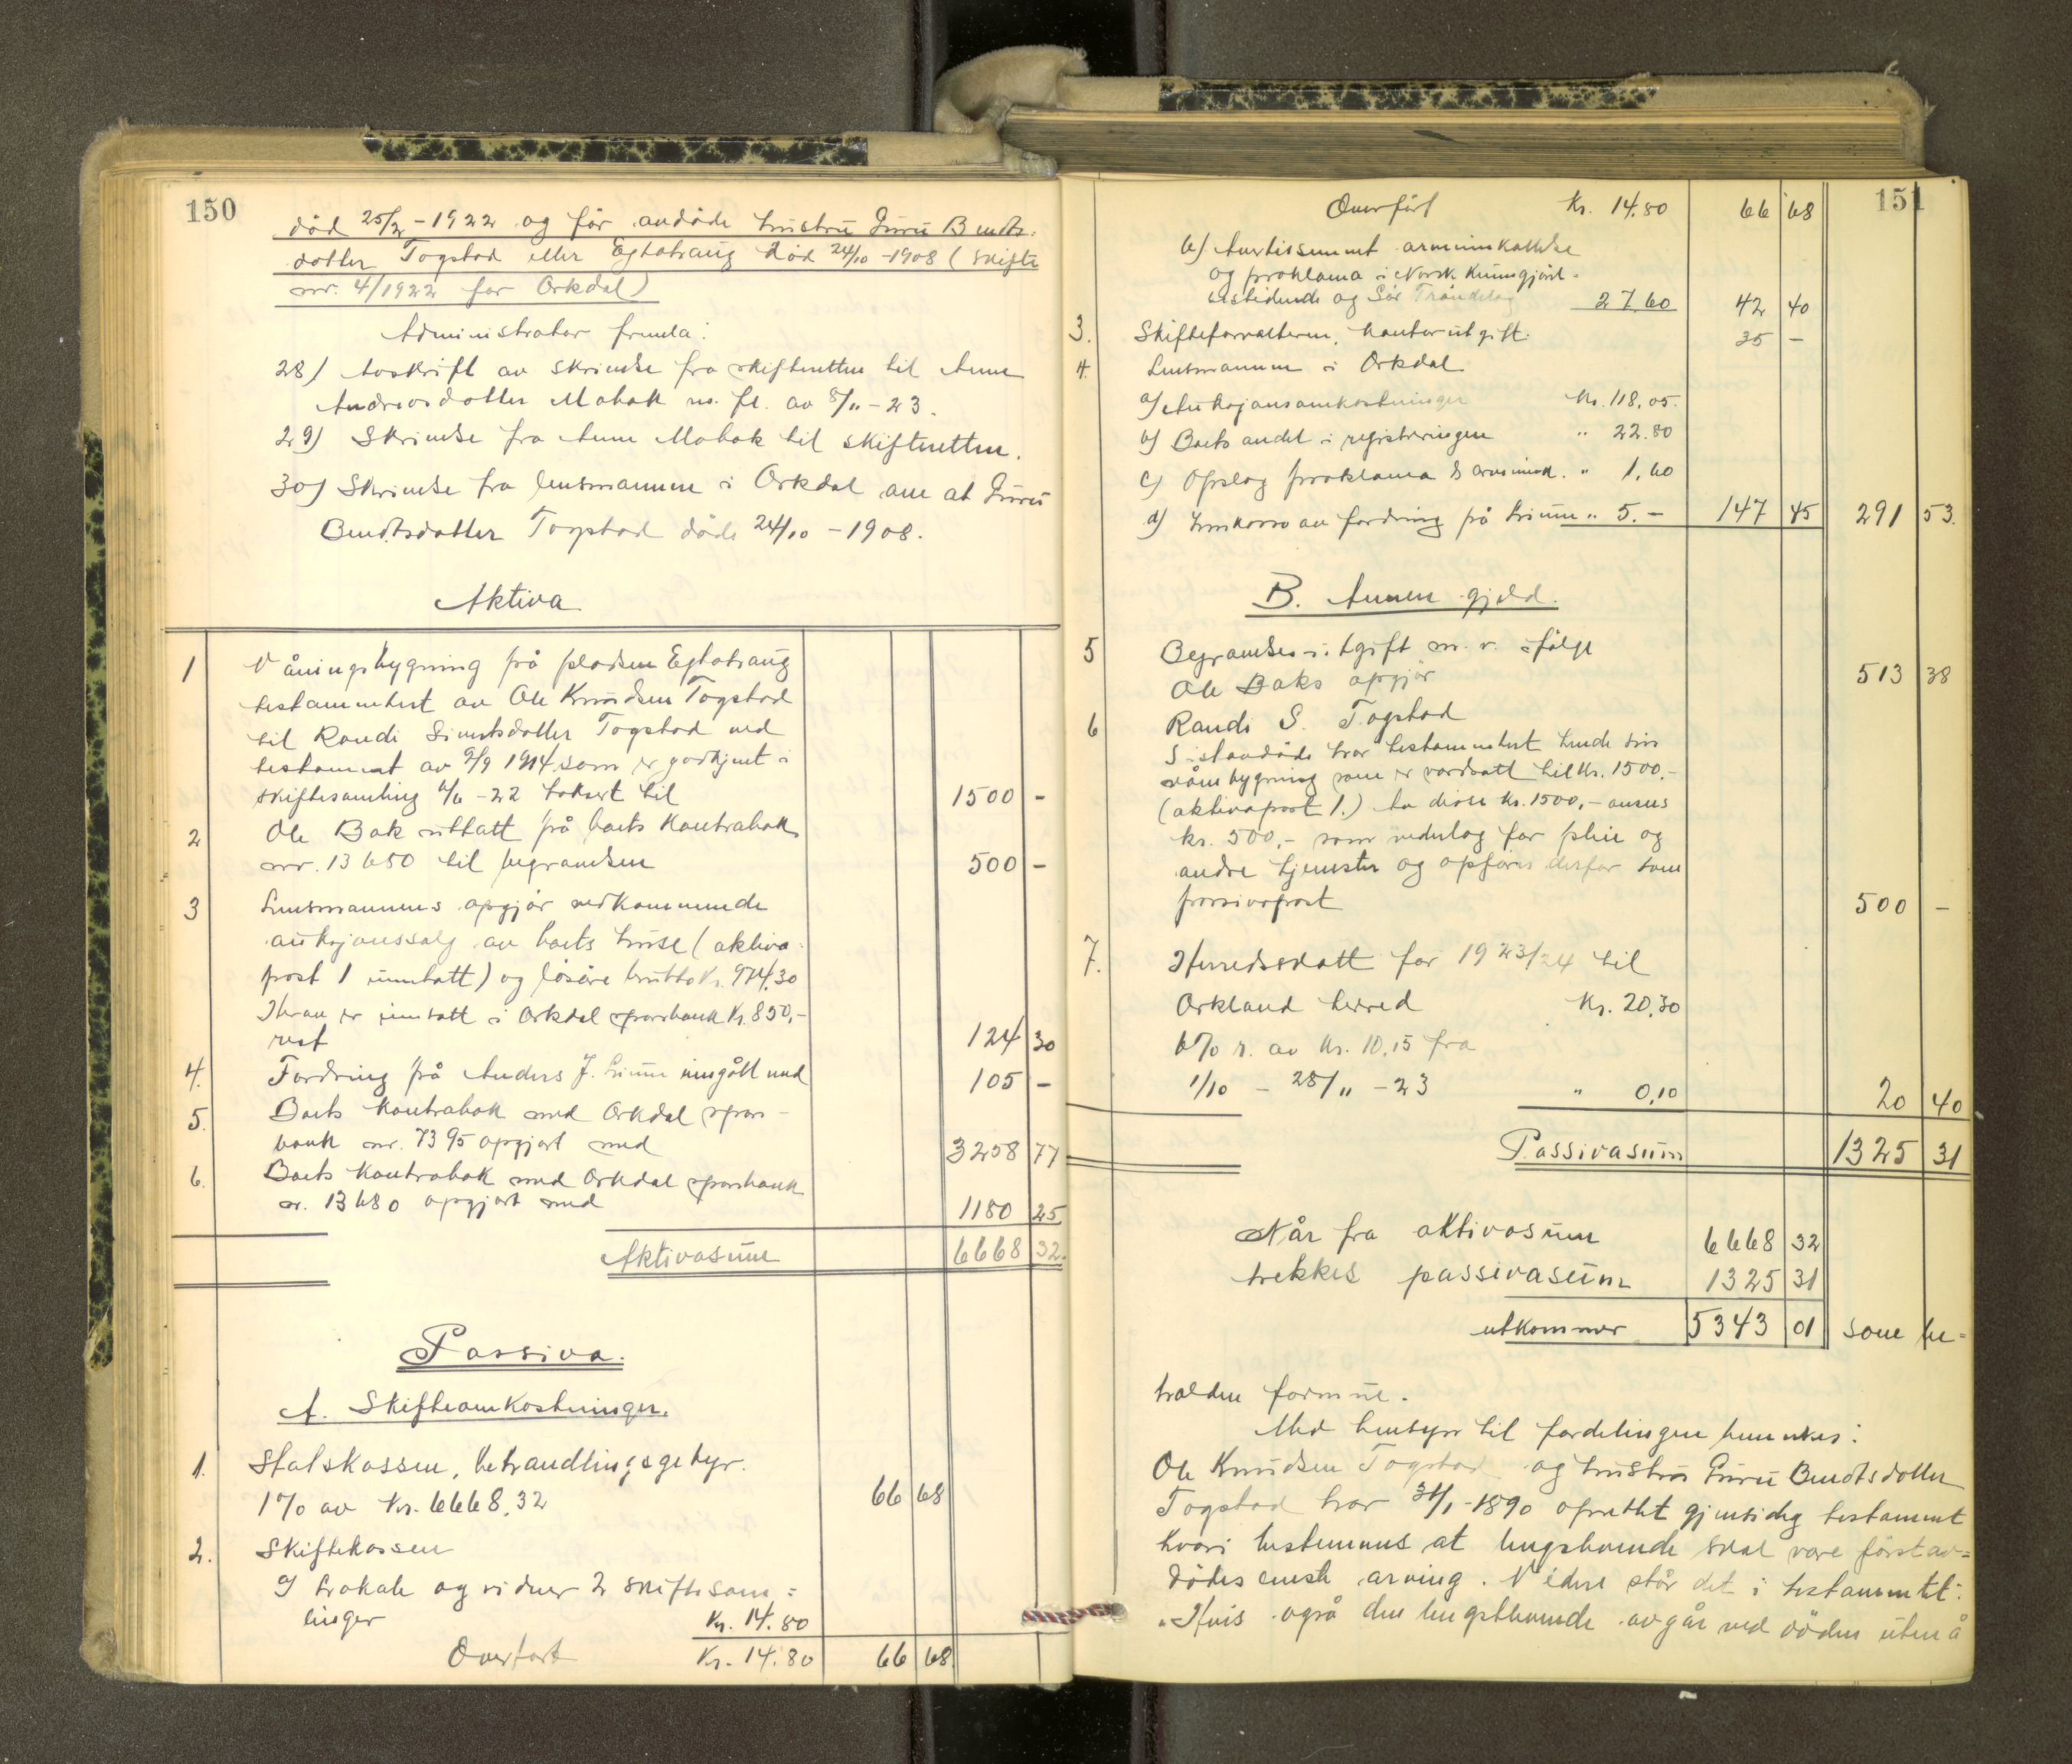 150
död 25/2 - 1922 og för avdöde hustru Guru Bendts-
dotter Togstad eller Eghøhaug död 24/10 - 1908 (skifte
nr. 4/1922 for Orkdal)
Administrator fremla:
28) Avskrift av skrivelse fra skifteretten til Anne
Andreasdatter Mobak m. fl. av 8/11 - 23.
29) Skrivelse fra Anne Mobak til skifteretten.
30) Skrivelse fra lensmannen i Orkdal om at Guru
Bendtsdatter Togstad döde 24/10 - 1908.
Aktiva
1 Våningsbygning på pladsen
testamentert av Ole Knudsen Togstad
til Randi Sivertsdatter Togstad ved
testament av 9/9 1914 som er godkjent i
skiftesamling 6/6 - 22 taksert til 1500 -
2 Ole Bak uttatt på boets kontrabok
nr. 13650 til begravelsen 500 -
3 Lensmannens opgjør vedkommende
auksjonssalg av boets huse (aktiva-
post 1 unntatt) og løsøre brutto kr. 974,30
Herav er innsatt i Orkdal sparebank kr. 850,-
rest 124 30
4. Fordring på Anders J. inngått med 105 -
5. Boets kontrabok med Orkdal spare-
bank nr. 7395 opgjort med 3258 77
6. Boets kontrabok med Orkdal sparebank
nr. 13680 opgjort med 1180 25
Aktivasum 6668 32.
Passiva.
A. Skifteomkostninger.
1. Statskassen, behandlingsgebyr.
1% av kr. 6668,32 66 68
2. Skiftekassen
a) Lokale og vidner 2 skiftesam-
linger kr. 14.80
Overført kr. 14.80 66 68
151
Overført kr. 14.80 66 68
b) Avertissement arveinnkallelse
og proklama i Norsk Kunngjørel-
sestidende og Sør Trøndelag 27.60 42 40
3. Skifteforvalteren, kontorutgift. 35 -
4. Lensmannen i Orkdal
a) Auksjonsomkostninger kr. 118.05.
b) Boets andel i registreringen " 22.80
c) Opslag proklama & " 1.60
d) Innkasso av fordring på " 5.- 147 45 291 53.
B. Annen gjeld.
5 Begravelses-utgift m. v. ifølge
Ole Baks opgjør 513 38
6 Randi S. Togstad
Sistavdøde har testamentert hende sin
våns bygning som er verdsatt til kr. 1500.-
(aktivapost 1.) Av disse kr. 1500,- ansees
kr. 500,- som vederlag for pleie og
andre tjenester og opføres derfor som
passivapost 500 -
7. Herredsskatt for 1923/24 til
Orkland herred kr. 20,30
6% r. av kr. 10,15 fra
1/10 - 28/11 - 23 " 0,10 20 40
Passivasum 1325 31
Når fra aktivasum 6668 32
trekkes passivasum 1325 31
utkommer 5343 01 som be-
holden formue.
Med hensyn til fordelingen bemerkes:
Ole Knudsen Togstad og hustru Guru Bendtsdatter
Togstad har 31/1 - 1890 oprettet gjensidig testament
hvori bestemmes at lengstlevende skal være förstav-
dödes eneste arving. Videre står det i testamentet:
"Hvis også den lengstlevende avgår ved döden uten å